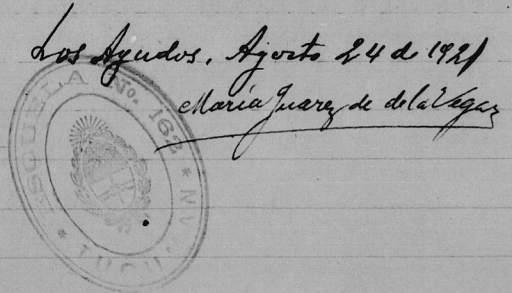 Los Agudos, Agosto 24 de 1921
María Juarez de de la Vega
ESCUELA No. 162 * TUCUMAN *